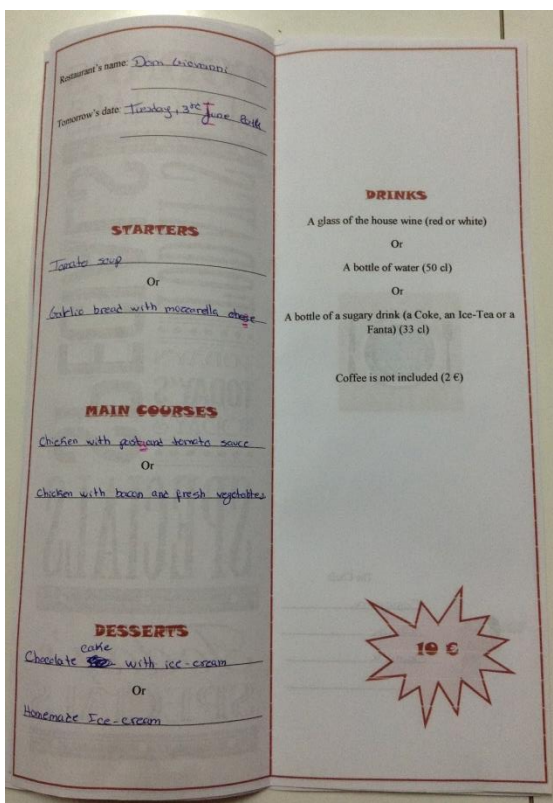 Restaurant's name: Don Giovanni
Tomorrow's date: Tuesday, 3rd June
STARTERS
Tomato soup
Or
Garlic bread with mozzarella cheese
MAIN COURSES
Chicken with pasta and tomato sauce
Or
Chicken with bacon and fresh vegetables
DESSERTS
cake
Chocolate with ice-cream
Or
Homemade Ice-cream
DRINKS
A glass of the house wine (red or white)
Or
A bottle of water (50 cl)
Or
A bottle of a sugary drink (a Coke, an Ice-Tea or a
Fanta) (33 cl)
Coffee is not included (2 €)
10 €